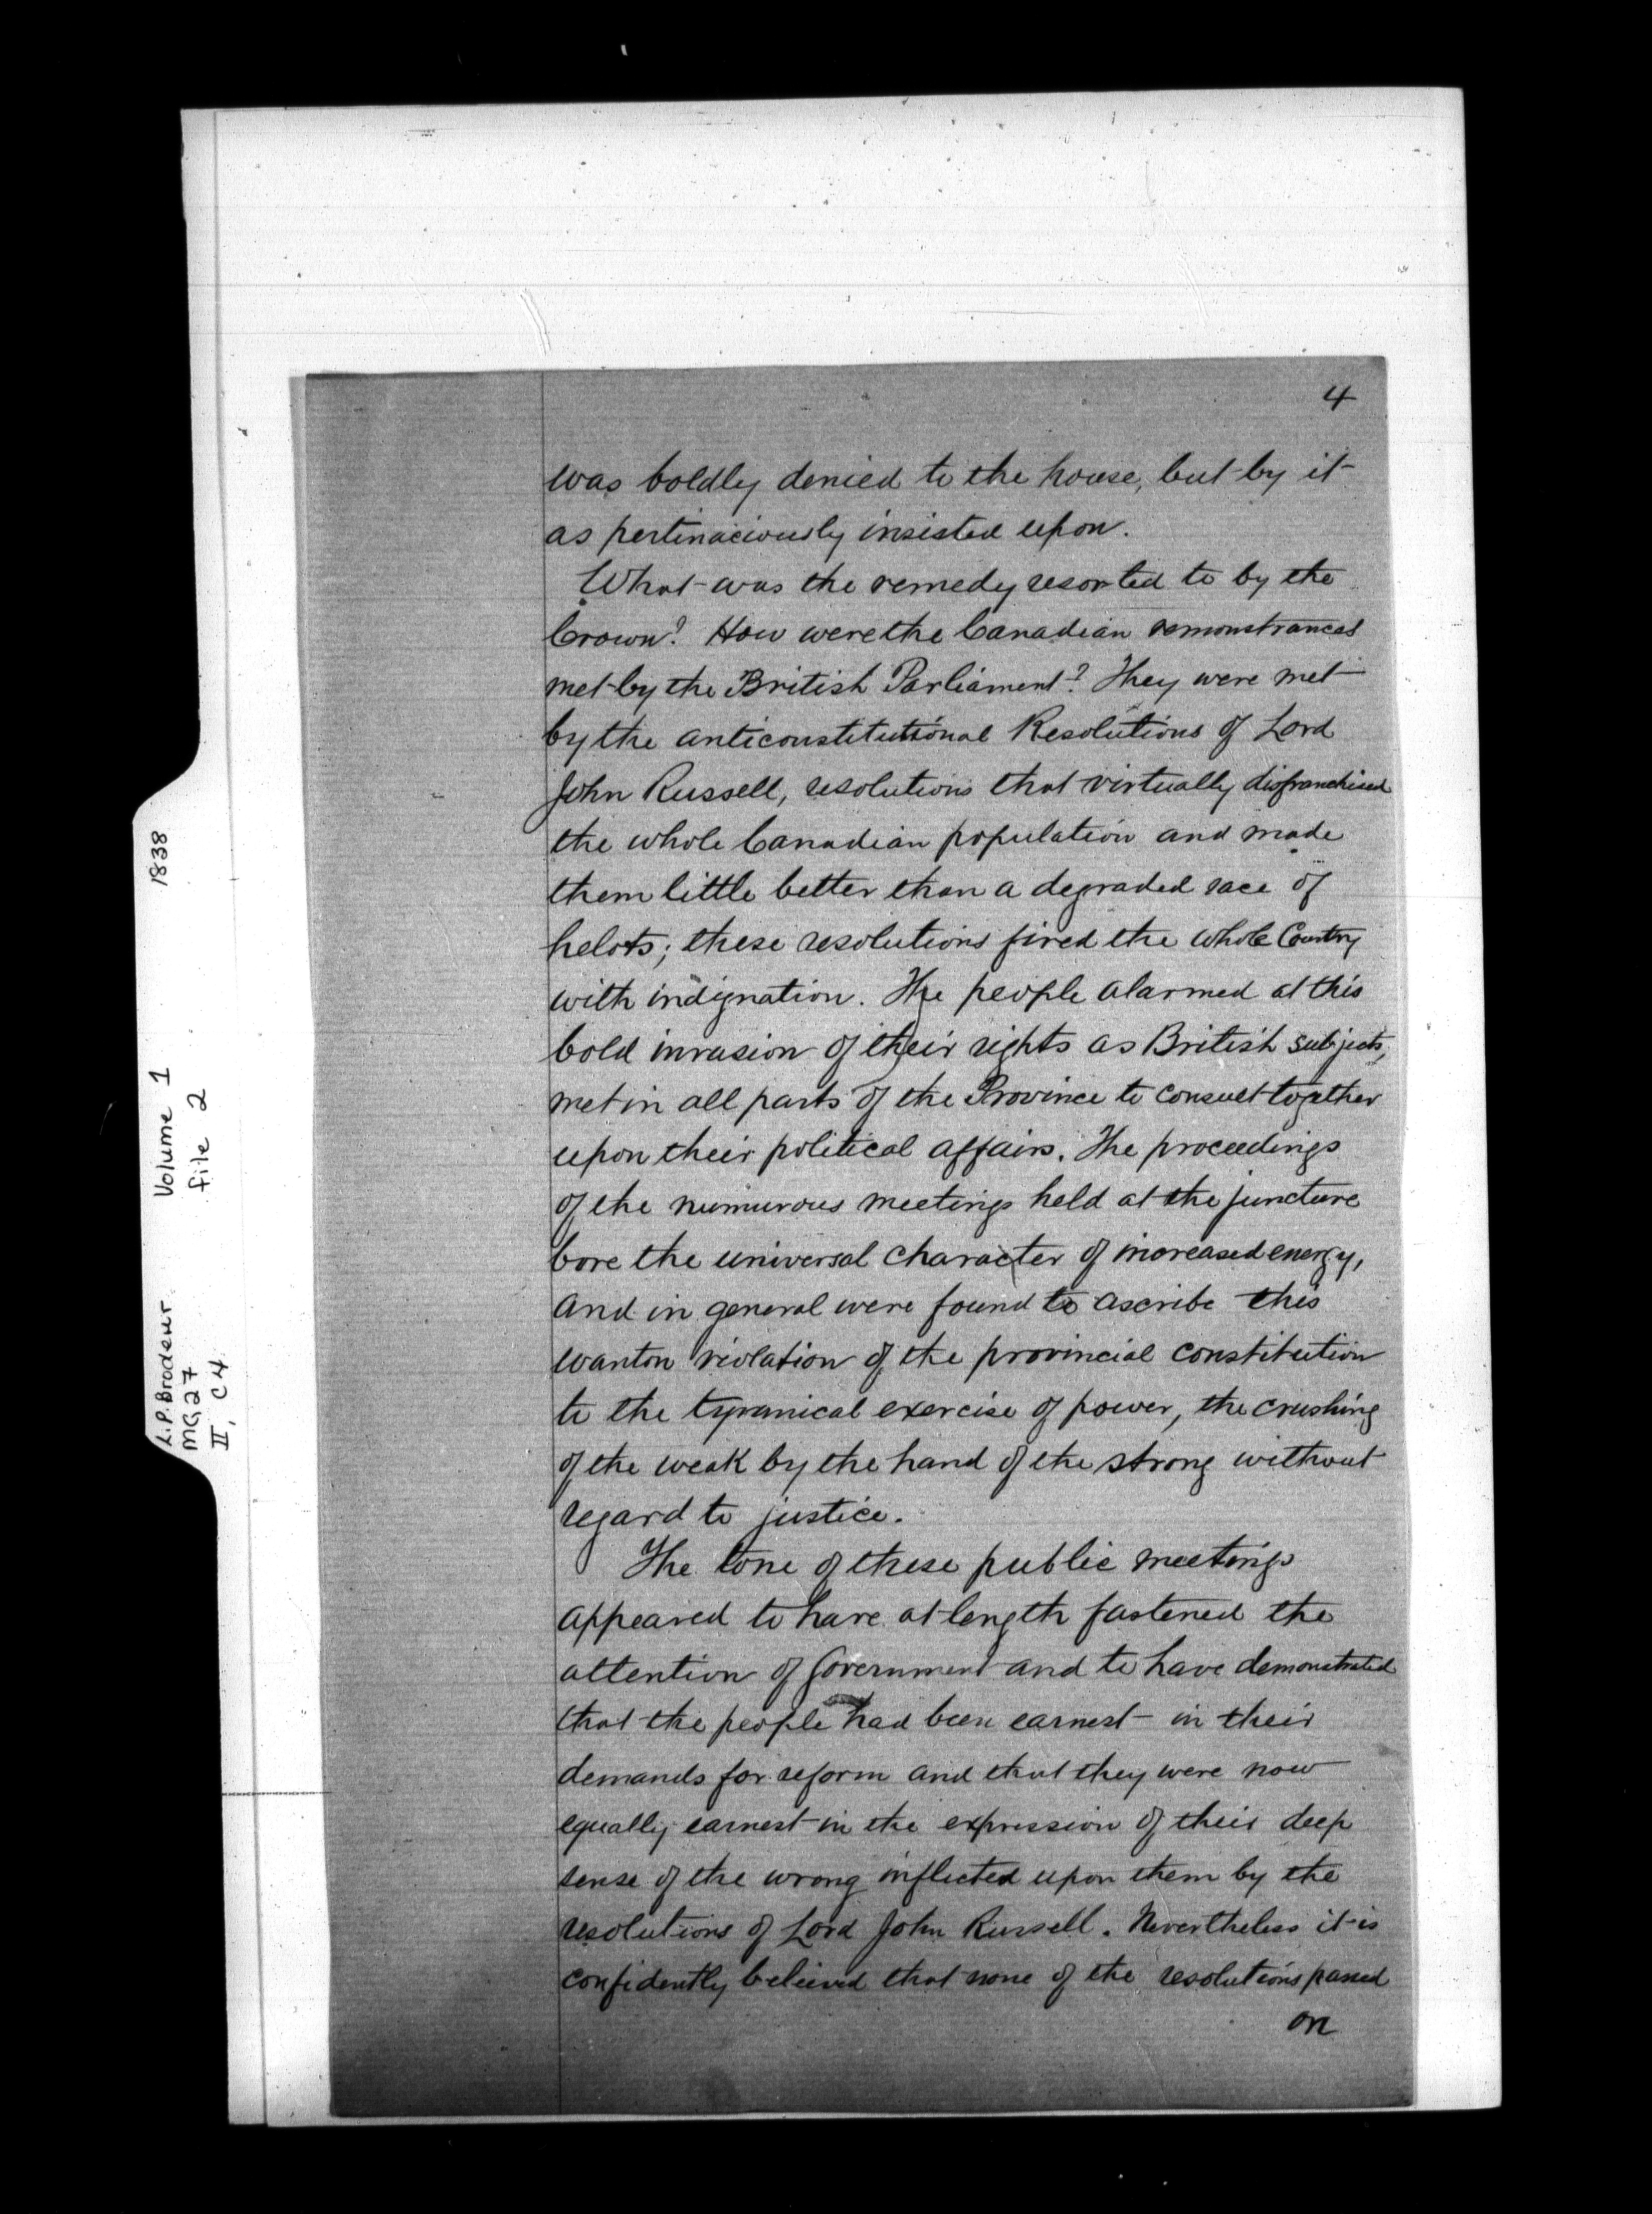 4
was boldly denied to the house, but by it
as pertinaciously insisted upon.
What was the remedy resorted to by the
Crown? How were the Canadian remonstrances
met by the British Parliament? They were met
by the anticonstitutional Resolutions of Lord
John Russell, resolutions that virtually disfranchised
the whole Canadian population and made
them little better than a degraded race of
helots; these resolutions fired the whole Country
with indignation. The people alarmed at this
bold invasion of their rights as British subjects,
met in all parts of the Province to consult together
upon their political affairs. The proceedings
of the numurous meetings held at the juncture
bore the universal character of increased energy,
and in general were found to ascribe this
wanton violation of the provincial constitution
to the tyranical exercise of power, the crushing
of the weak by the hand of the strong without
regard to justice.
The tone of these public meetings
appeared to have at length fastened the
attention of Government and to have demonstrated
that the people had been earnest in their
demands for reform and that they were now
equally earnest in the expression of their deep
sense of the wrong inflicted upon them by the
resolutions of Lord John Russell. Nevertheless it is
confidently believed that none of the resolutions passed
on
L.P. Brodeur Volume 1 1838
MG27 file 2
II, C4